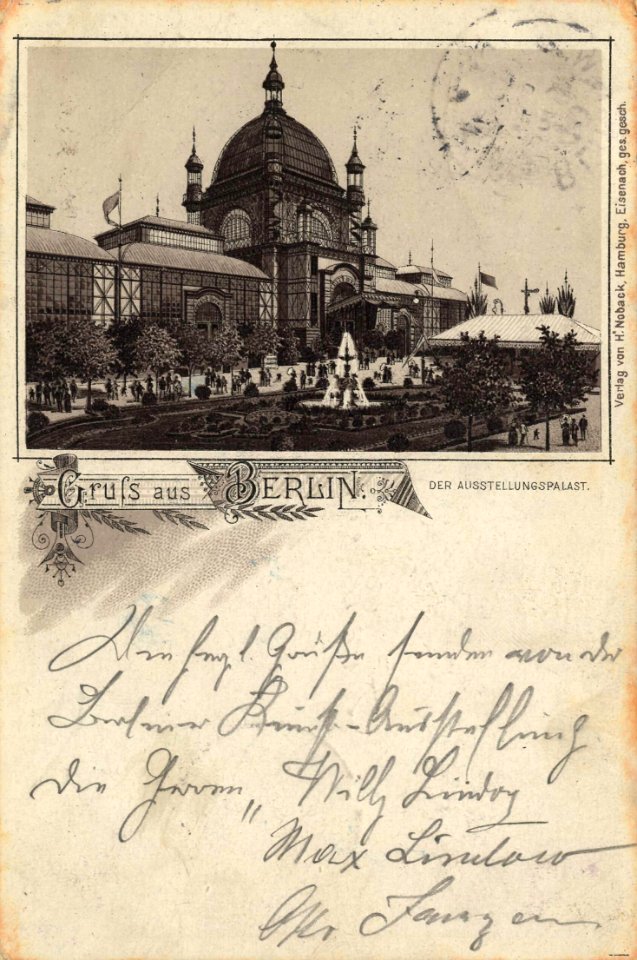 Verlag von H. Noback, Hamburg, Eisenach, ges. gesch.
Gruſs aus BERLIN.
DER AUSSTELLUNGSPALAST.
Die herzl. Grüße senden von der
Berliner Kunst-Ausstellung
die Herren Willy
Max
Otto